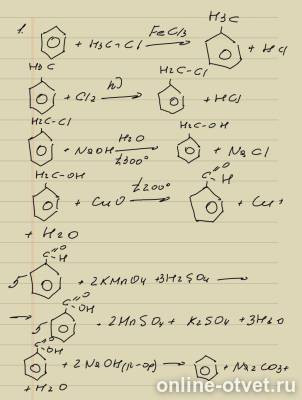 1. + H3C-Cl FeCl3 → H3C + HCl
H3C + Cl2 hν → H2C-Cl + HCl
H2C-Cl + NaOH H2O t,300° → H2C-OH + NaCl
H2C-OH + CuO t,200° → C=O H + Cu +
+ H2O
5 C=O H + 2KMnO4 + 3H2SO4 →
→ 5 C=O OH + 2MnSO4 + K2SO4 + 3H2O
C=O OH + 2NaOH → + Na2CO3 +
+ H2O
online-otvet.ru